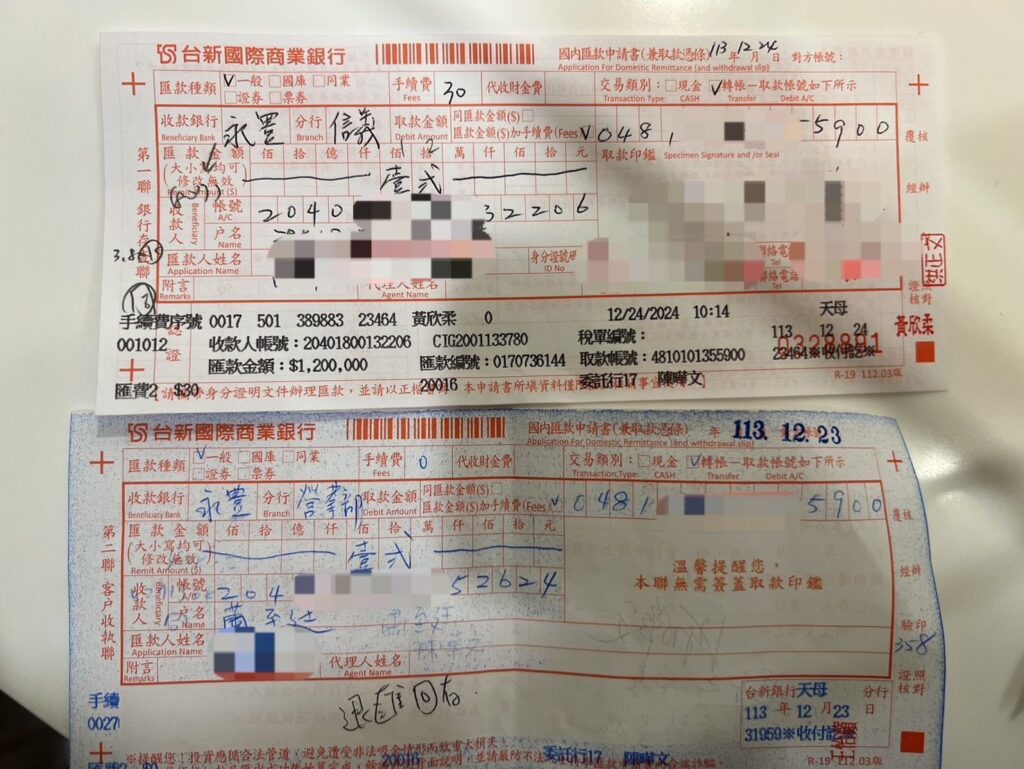 台新國際商業銀行
國內匯款申請書(兼取款憑條) 113年12月24日 對方帳號:
Application For Domestic Remittance (and withdrawal slip)
匯款種類 V一般 □國庫 □同業 □證券 □票券
手續費 Fees 30 代收財金費
交易類別: □現金 V轉帳—取款帳號如下所示
Transaction Type: CASH Transfer Debit A/C
收款銀行 Beneficiary Bank 永豐 分行 Branch 信義
取款金額 Debit Amount 同匯款金額($)□ 匯款金額加手續費(Fees)V
0481 5900 覆核
第一聯 銀行存
匯款金額 佰拾億仟佰拾萬仟佰拾元
(大小寫均可修改無效) 壹貳
取款印鑑 Specimen Signature and/or Seal
經辦
收款人 Beneficiary 帳號 A/C 2040 32206
戶名 Name
匯款人姓名 Application Name
身分證號碼 ID No
聯絡電話 Tel
聯絡電話 Tel
附言 Remarks
代理人姓名 Agent Name
證照核對
手續費序號 0017 501 389883 23464 黃欣柔 0 12/24/2024 10:14 天母
001012 收款人帳號:20401800132206 CIG2001133780 稅單編號: 113 12 24
匯款金額:$1,200,000 匯款編號:0170736144 取款帳號:4810101355900 23464※收付訖※
0328891
黃欣柔
匯費2 $30 20016 委託行17 陳曄文
R-19 112.03版
台新國際商業銀行
國內匯款申請書(兼取款憑條) 113.12.23
Application For Domestic Remittance (and withdrawal slip)
匯款種類 V一般 □國庫 □同業 □證券 □票券
手續費 Fees 0 代收財金費
交易類別: □現金 V轉帳—取款帳號如下所示
Transaction Type: CASH Transfer Debit A/C
收款銀行 Beneficiary Bank 永豐 分行 Branch 營業部
取款金額 Debit Amount 同匯款金額($)□ 匯款金額加手續費(Fees)V
0481 5900 覆核
第二聯 客戶收執聯
匯款金額 佰拾億仟佰拾萬仟佰拾元
(大小寫均可修改無效) Remit Amount ($) 壹貳
溫馨提醒您,
本聯無需簽蓋取款印鑑
經辦
收款人 Beneficiary 帳號 A/C 204 52624
戶名 Name
驗印
358
匯款人姓名 Application Name
附言 Remarks
代理人姓名 Agent Name
證照核對
退匯回存
手續
0027
台新銀行天母分行
113年12月23日
31959※收付訖※
R-19 112.03版
※提醒您!投資應循合法管道,避免遭受非法吸金情形而致重大損失!
匯費2 $0 20016 委託行17 陳曄文